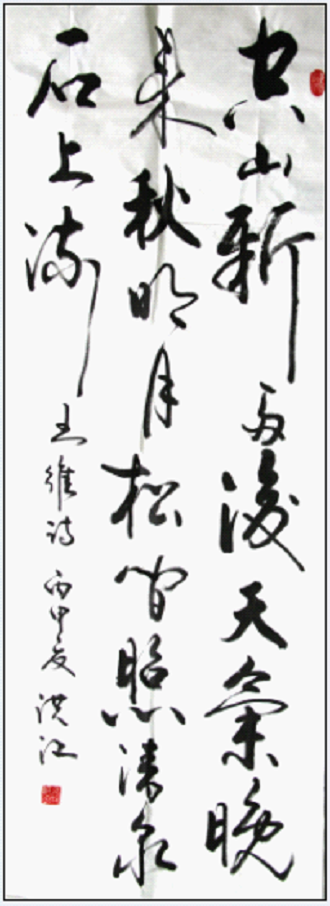 空山新雨後天氣晚
来秋明月松間照清泉
石上流
王維詩 丙申夏 洪江